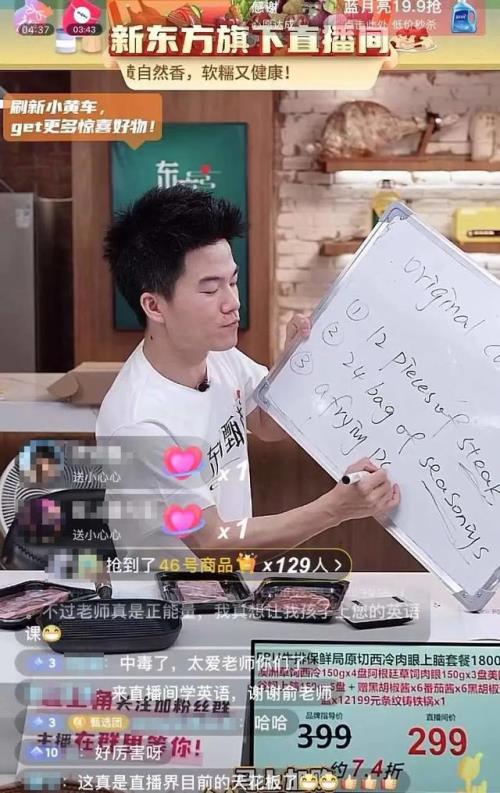 04:37
03:43
感谢
心愿达成
蓝月亮19.9抢
点击此处 低价秒杀
新东方旗下直播间
黄自然香，软糯又健康！
刷新小黄车，
get更多惊喜好物！
东
original
① 12 pieces of steak
② 24 bag of seasonings
③ a frying
东方甄
送小心心
x1
送小心心
x1
抢到了 46号商品 x129人 >
不过老师真是正能量，我真想让我孩子上您的英语
课
3
中毒了，太爱老师你们了
来直播间学英语，谢谢俞老师
关注加粉丝群
3 甄选团 哈哈
主播在群里等你！
10 好厉害呀
这真是直播界目前的天花板了
原切西冷肉眼上脑套餐1800
澳洲草饲西冷150gx4盘阿根廷草饲肉眼150gx3盘美
+赠黑胡椒酱x6番茄酱x6黑
12199元条纹铸铁锅x1
品牌指导价
399
直播间价
299
约7.4折